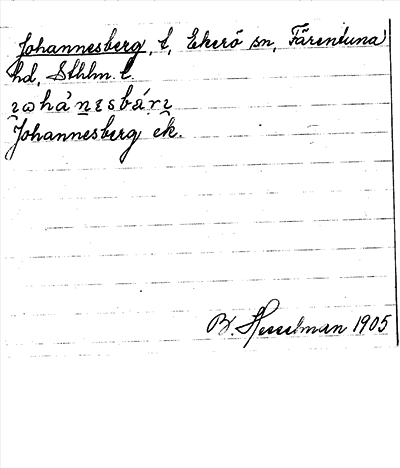 Johannesberg, t, Ekerö sn, Färentuna
hd, Sthlm. l.
Johannesberg ek.
B. Hesselman 1905